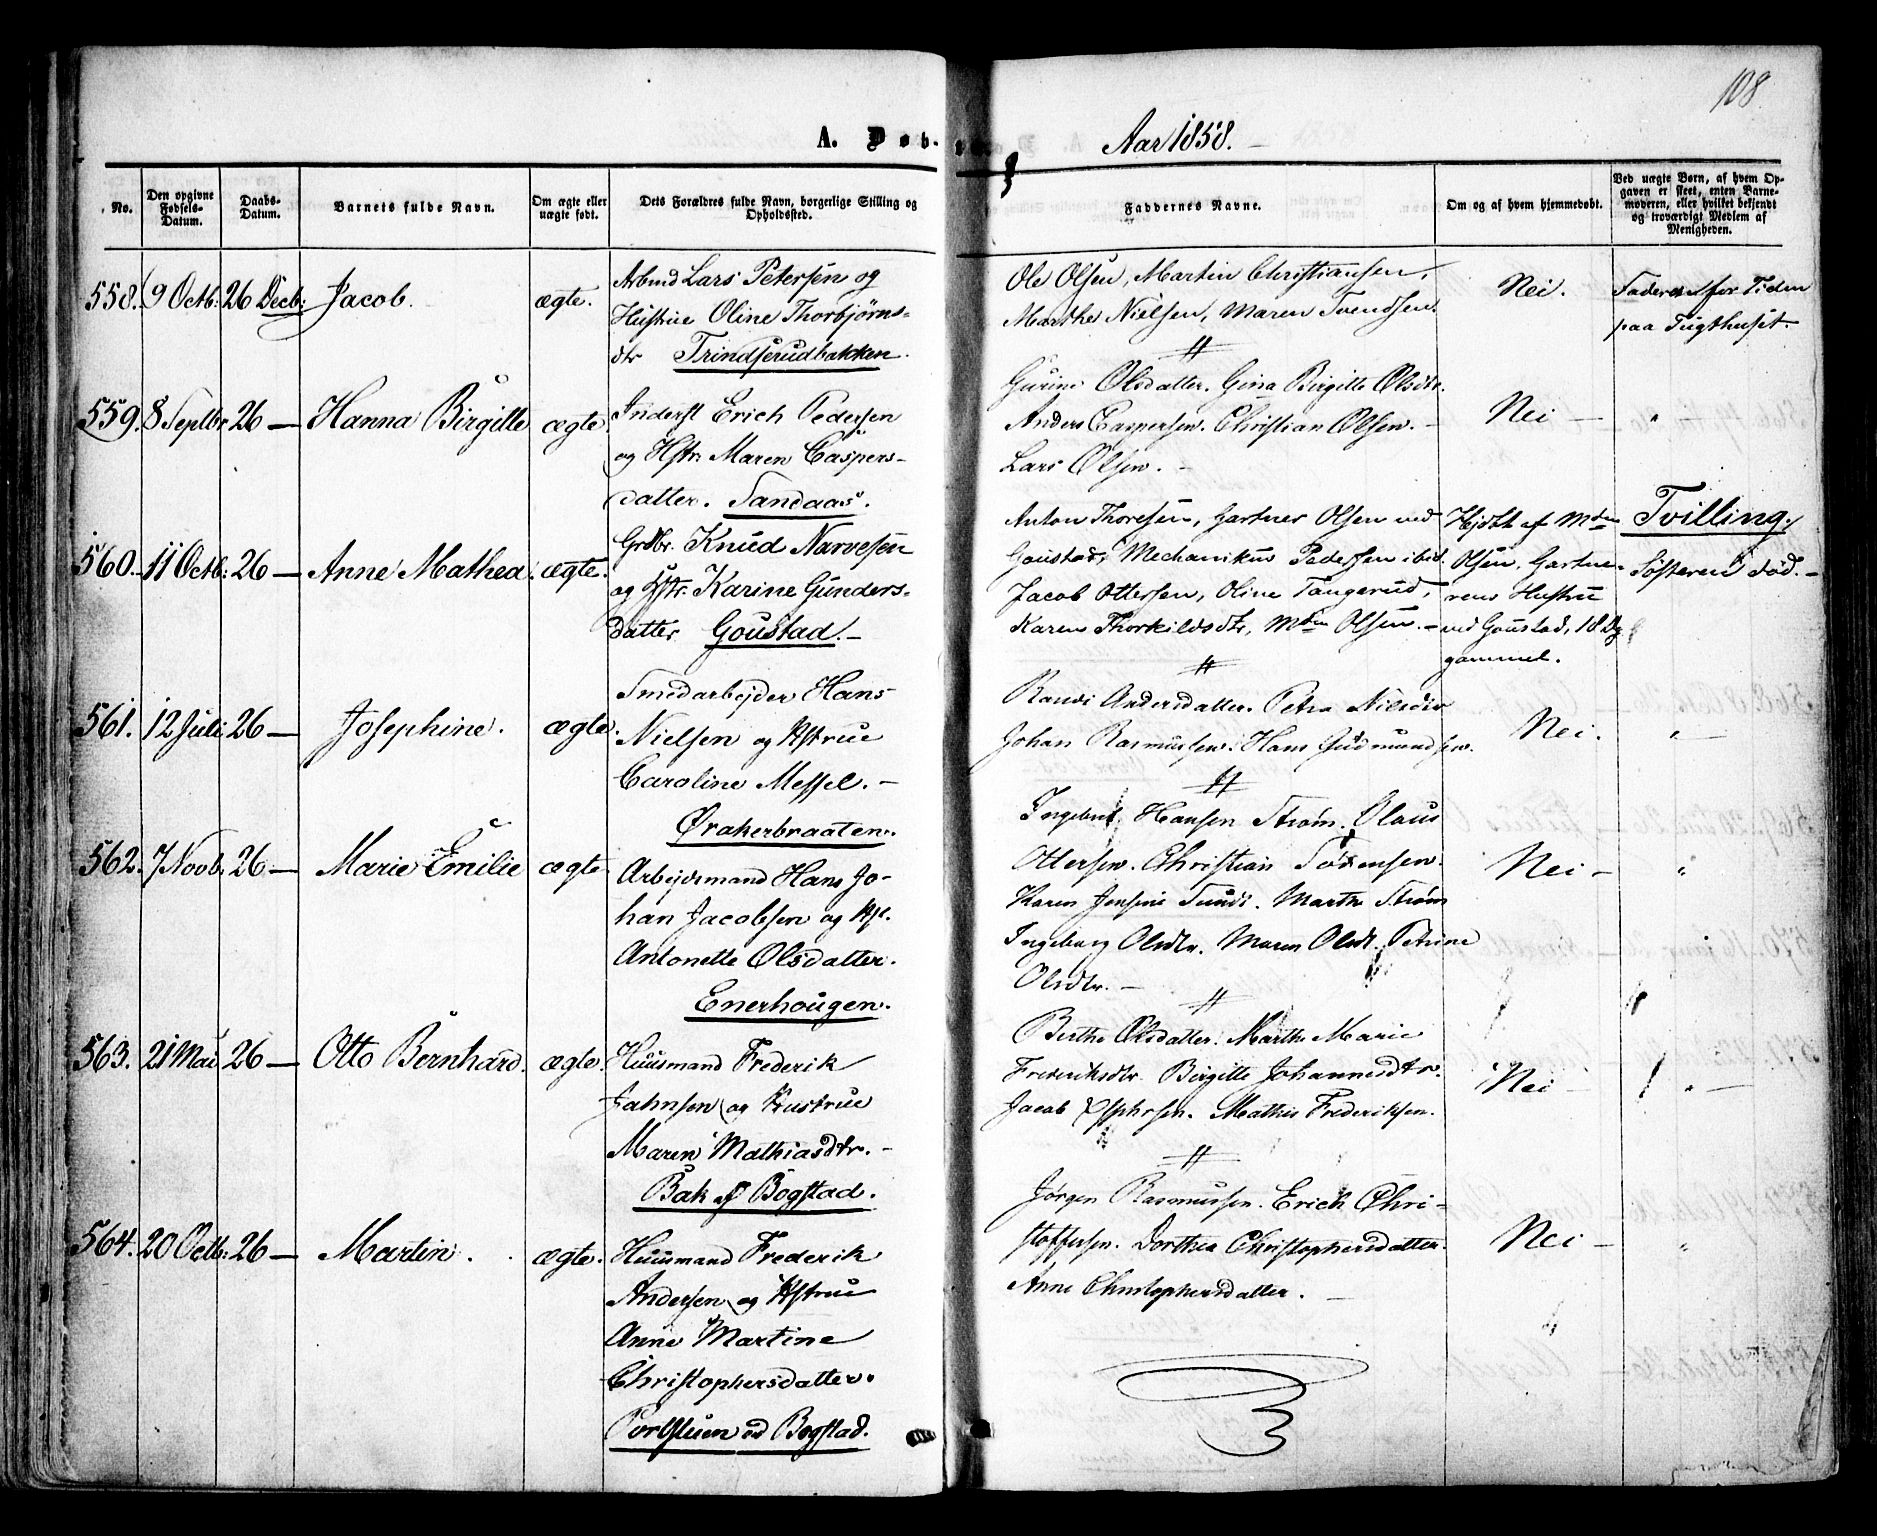 108
A. Døb
Aar 1858.
No.
Den opgivne Fødsels-Datum.
Daabs-Datum.
Barnets fulde Navn.
Om ægte eller uægte født.
Dets Forældres fulde Navn, borgerlige Stilling og Opholdssted.
Faddernes Navne.
Om og af hvem hjemmedøbt.
Ved uægte Børn, af hvem Opgaven er skeet, enten Barnemoderen, eller hvilket bekjendt og troværdigt Medlem af Menigheden.
558. 9 Octb: 26 Decb: Jacob. ægte.
Arbmd Lars Petersen og
Hustrue Oline Thorbjørns-
dtr Trindserudbakken.
Ole Olsen, Martin Christiansen,
Marthe Nielsen, Maren Svendsen.
Nei.
Faderen for Tiden
paa Tugthuset.
559. 8 Septbr 26 — Hanna Birgitte ægte.
Inderst Erich Pedersen
og Hstr: Maren Caspers-
datter. Sandaas.
Gurine Olsdatter. Gina Birgitte Olsdtr.
Anders Caspersen. Christian Olsen. –
Lars Olsen. –
Nei — "
560. 11 Octb: 26 — Anne Mathea. ægte.
Grdbr. Knud Narvesen
og Hstr: Karine Gunders-
datter Goustad. –
Anton Thoresen, Gartner Olsen ved
Goustad, Mechanikus Pedersen ibid.
Jacob Ottersen, Oline Tangerud,
Karen Thorkildsdtr, Mdm Olsen. –
Hjdbt af Mdm
Olsen, Gartne-
rens Hustru
ved Goustad, 18 Dg
gammel.
Tvilling.
Søsteren død. –
561. 12 Juli 26 — Josephine. ægte.
Smedarbejder Hans
Nielsen og Hstrue
Caroline Messel. –
Ørakerbraaten.
Randi Andersdatter. Petra Nilsdtr
Johan Rasmussen. Hans Gudmundsen.
Nei. " —
562. 7 Novb. 26 — Marie Emilie ægte.
Arbejdsmand Hans Jo-
han Jacobsen og Hst.
Antonette Olsdatter.
Enerhougen.
Ingebret Hansen Strøm. Olaus
Ottersen. Christian Sørensen.
Karen Jensine Sund. Marthe Strøm
Ingeborg Olsdtr. Maren Olsdt. Petrine
Olsdtr. –
Nei – "
563. 21 Mai 26 — Otto Bernhard. ægte.
Huusmand Frederik
Jahnsen og Hustrue
Maren Mathiasdtr. –
Bak af Bogstad.
Berthe Olsdatter. Marthe Marie
Frederiksdtr. Birgitte Johannesdtr.
Jacob. Mathis Frederiksen.
Nei – " —
564. 20 Octb: 26 — Martin. ægte.
Huusmand Frederik
Andersen og Hstrue
Anne Martine
Christophersdatter.
ved Bogstad.
Jørgen Rasmussen. Erich Chri-
stoffersen. Dorthea Christophersdatter.
Anne Christophersdatter. –
Nei – "